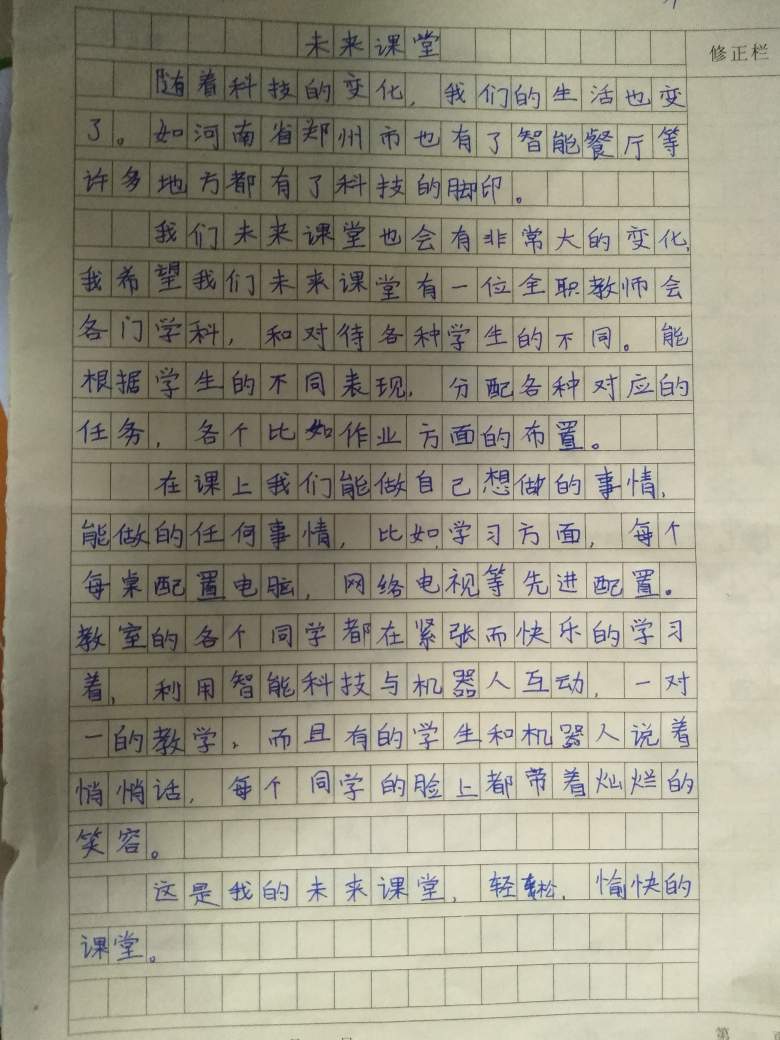 修正栏
未来课堂
随着科技的变化，我们的生活也变
了。如河南省郑州市也有了智能餐厅等
许多地方都有了科技的脚印。
我们未来课堂也会有非常大的变化，
我希望我们未来课堂有一位全职教师会
各门学科，和对待各种学生的不同。能
根据学生的不同表现，分配各种对应的
任务，各个比如作业方面的布置。
在课上我们能做自己想做的事情，
能做的任何事情，比如学习方面，每个
每桌配置电脑，网络电视等先进配置。
教室的各个同学都在紧张而快乐的学习
着，利用智能科技与机器人互动，一对
一的教学，而且有的学生和机器人说着
悄悄话，每个同学的脸上都带着灿烂的
笑容。
这是我的未来课堂，轻松，愉快的
课堂。
第